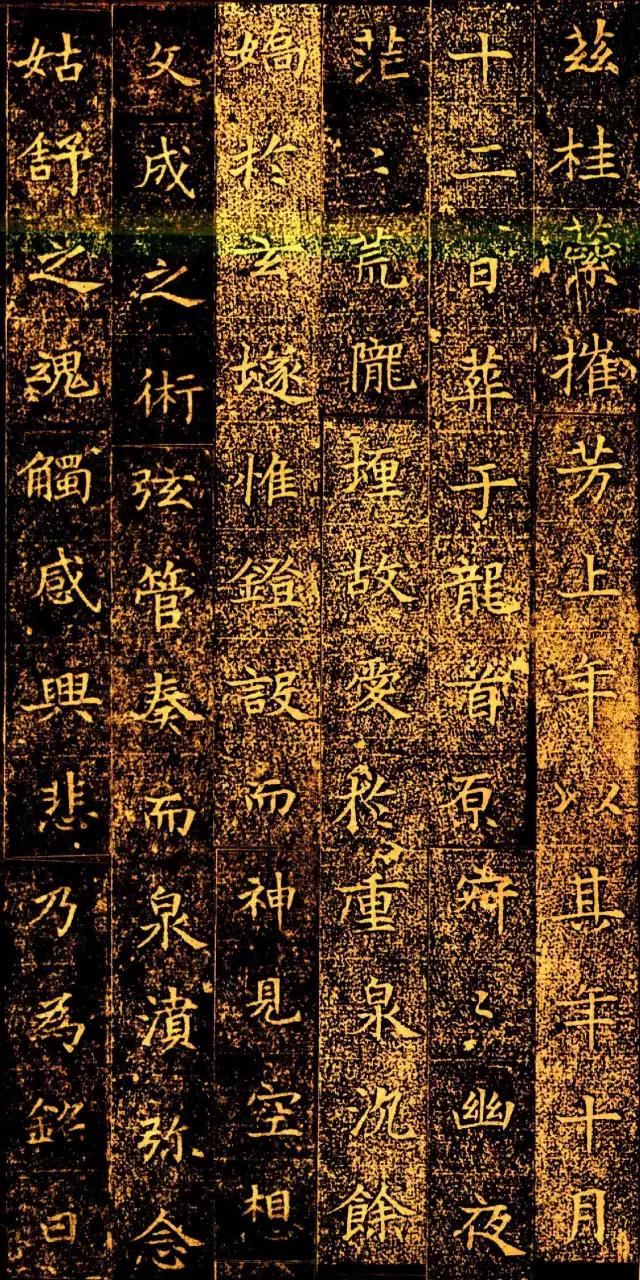 茲桂蘂摧芳上年以其年十月
十二日葬于龍首原寂〻幽夜
茫〻荒隴埋故愛於重泉沉餘
嬌於玄隧惟鐙設而神見空想
文成之術弦管奏而泉濆弥念
姑舒之魂觸感興悲乃為銘曰